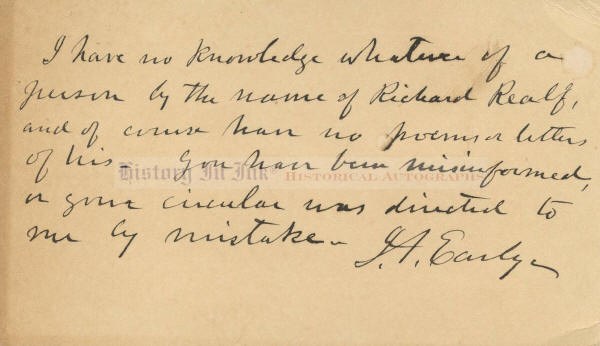 I have no knowledge whatever of a
person by the name of Richard Realf,
and of course have no poems or letters
of his - You have been misinformed,
History In Ink® HISTORICAL AUTOGRAPHS
or your circular was directed to
me by mistake -
J.A. Early -